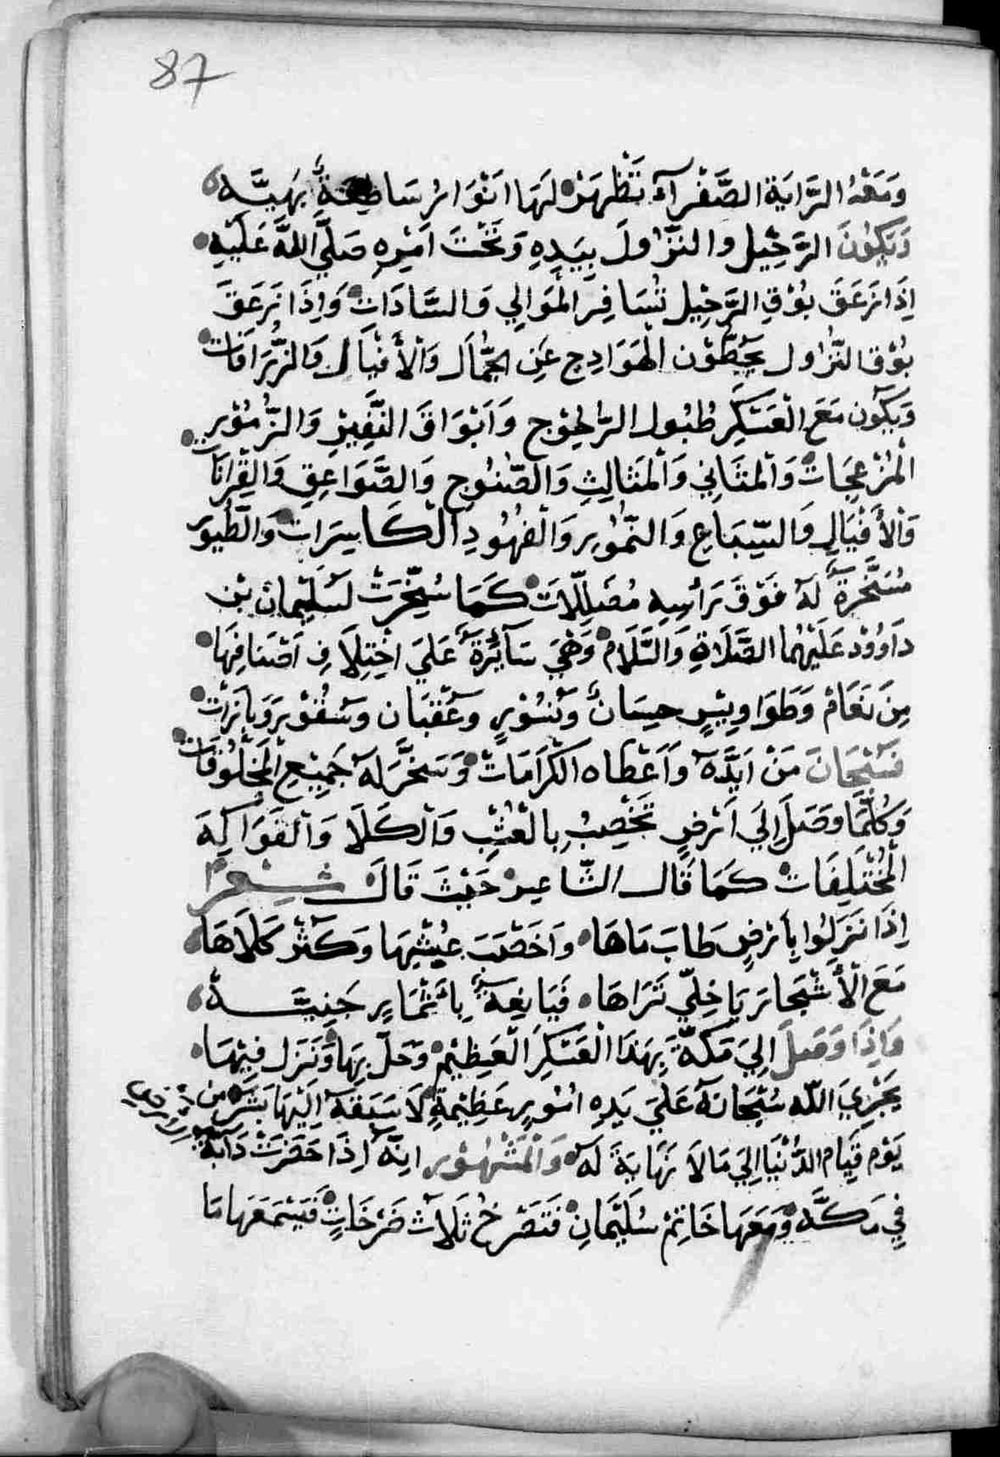 87
وَمَعَهُ الرَّايَة الصَّفْرَآء تَظْهَرْ لَهَا انْوَار سَاطِعَةٌ بَهِيَّه
وَيَكُونَ الرَّحِيل والنزّولَ بِيَدِهِ وَتَحْتَ امْرِهِ صَلَّي اللهُ عَلَيْهِ
اِذَا زَعَقَ بُوْقِ الرَّحِيْل تُسَافِر المَوَالِي وَالسَّادَاتْ وَاِذَا زَعَقَ
بُوْق النّزُول يَحُطّوْن الْهَوَادِج عَنِ الجِّمَال وَالأَفْيَال وَالزَّرَافَات
وَيَكُون مَعَ الْعَسْكَرِ طُبُول الرَّجُوْج وَاَبْوَاقَ النَّفِيْرِ وَالزُّمُوْر
الْمُزْعِجَاتْ وَالْمَثَانِي وَالْمَثَالِثِ وَالصُّنُوجِ وَالصَّوَاعِقِ وَالْقِرَانَات
وَالأَفْيَالِ وَالسِّبَاعِ وَالنّمُوْر وَالْفُهُودِ الْكَاسِرَاتْ وَالطُيُور
مُسَخَّرَةً لَهُ فَوْقَ رَأسِهِ مُضَلِّلَاتْ كَمَا سُخِّرَتْ لسُلَيْمان بْن
دَاوُوْد عَلَيْهُمَا الصَّلَاةِ وَالسَّلَامْ وَهْيَ سَآئِرَةً عَلَيَ اخْتِلَاف اَصْنَافِهَا
مِنَ نَعَامْ وَطَوَاوِيْسٍ حِسَانٌ وَنُسُوْرٍ وَعُقْبَان وسُقُوْر وَبَازَاتْ
فَسُبْحَانَ مَنْ اَيَّدَهُ وَاَعْطَاه الكَرَامَاتْ وَسَخَّرَ لَهُ جَمِيْعِ الْمَخْلُوْقَات
وَكُلَّمَا وَصَلَ اِلَيَ اَرْضٍ تَخْصِبُ بِالْعُشْبِ وَالْكَلَا وَالفَوَاكِهَ
الْمُخْتَلِفَاتْ كَمَا قَالَ الشّاعِر حَيْثَ قَالَ شِعْر
اِذَا نَزَلُوا بِأَرْضٍ طَابَ مَاهَا وَاَخْصَبَ عِيْشِهَا وَكَثر كَلَاهَا
مَعَ الْأَشْجَار يَا خِلّي تَرَاهَا فَيَانِعةٍ بِاثْمَارٍ جَنِيَّهْ
وَاِذَا وَصَلَ اِلَيَ مَكَّةَ بِهَذَا الْعَسْكَرِ الْعَظِيْمْ وَحَلَّ بِهَا وَنَزَل فِيْهَا
يَجْرِيَ اللّه سُبْحَانَهُ عَلَيَ يَدِهِ امُوْرٍ عَظِيْمَةٍ لَا سَبَقَهُ اِلَيْهَا بَشَرٌ مِن
يَوْم قِيَام الدُّنْيَا اِلَيَ مَالَا نَهَايَةَ لَهُ وَالْمَشْهُوْر انهُ اِذَا حَضَرَتْ دَآبَّةُ
فِي مَكَّه وَمَعَهَا خَاتِمْ سُلَيْمَان فَتَصْرخُ ثَلَاث صَرْخَاتٍ فَيَسْمَعَهَا مَا